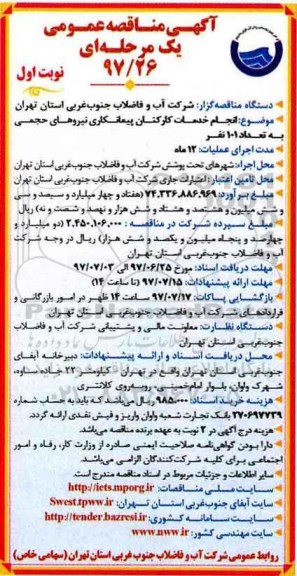 آگهی مناقصه عمومی
یک مرحله‌ای
۹۷/۲۶
نوبت اول
دستگاه مناقصه‌گزار: شرکت آب و فاضلاب جنوب‌غربی استان تهران
موضوع: انجام خدمات کارکنان پیمانکاری نیروهای حجمی
به تعداد ۱۰۱ نفر
مدت اجرای عملیات: ۱۲ ماه
محل اجرا: شهرهای تحت پوشش شرکت آب و فاضلاب جنوب‌غربی استان تهران
محل تامین اعتبار: اعتبارات جاری شرکت آب و فاضلاب جنوب‌غربی استان تهران
مبلغ برآورد: ۷۴.۳۳۶.۸۸۶.۹۶۹ (هفتاد و چهار میلیارد و سیصد و سی
و شش میلیون و هشتصد و هشتاد و شش هزار و نهصد و شصت و نه) ریال
مبلغ سپرده شرکت در مناقصه: ۲.۴۵۰.۱۰۶.۰۰۰ (دو میلیارد و
چهارصد و پنجاه میلیون و یکصد و شش هزار) ریال در وجه شرکت
آب و فاضلاب جنوب غربی استان تهران
مهلت دریافت اسناد: مورخ ۹۷/۰۶/۲۵ الی ۹۷/۰۷/۰۳
مهلت ارائه پیشنهادات: ۹۷/۰۷/۱۵ (تا ساعت ۱۴)
بازگشایی پاکات: ۹۷/۰۷/۱۷ ساعت ۱۴ ظهر در امور بازرگانی و
قراردادهای شرکت آب و فاضلاب جنوب‌غربی استان تهران
دستگاه نظارت: معاونت مالی و پشتیبانی شرکت آب و فاضلاب
جنوب‌غربی استان تهران
محل دریافت اسناد و ارائه پیشنهادات: دبیرخانه آبفای
جنوب‌غربی استان تهران واقع در تهران - کیلومتر ۲۳ جاده ساوه،
شهرک واوان، بلوار امام خمینی، روبه‌روی کلانتری
هزینه خرید اسناد: ۹۸۵.۰۰۰ ریال می‌باشد که باید به حساب شماره
۲۷۰۶۹۷۷۳۹ بانک تجارت شعبه واوان واریز و فیش نقدی ارائه گردد.
هزینه درج آگهی در ۲ نوبت به عهده برنده مناقصه می‌باشد.
دارا بودن گواهی‌نامه صلاحیت ایمنی صادره از وزارت کار، رفاه و امور
اجتماعی برای کلیه شرکت‌کنندگان الزامی می‌باشد.
سایر اطلاعات و جزئیات مربوط در اسناد مناقصه مندرج است.
سایت ملی مناقصات: http://iets.mporg.ir
سایت آبفای جنوب‌غربی استان تهران: Swest.tpww.ir
سایت سامانه کشوری: http://tender.bazresi.ir
سایت مهندسی کشور: www.nww.ir
روابط عمومی شرکت آب و فاضلاب جنوب غربی استان تهران (سهامی خاص)